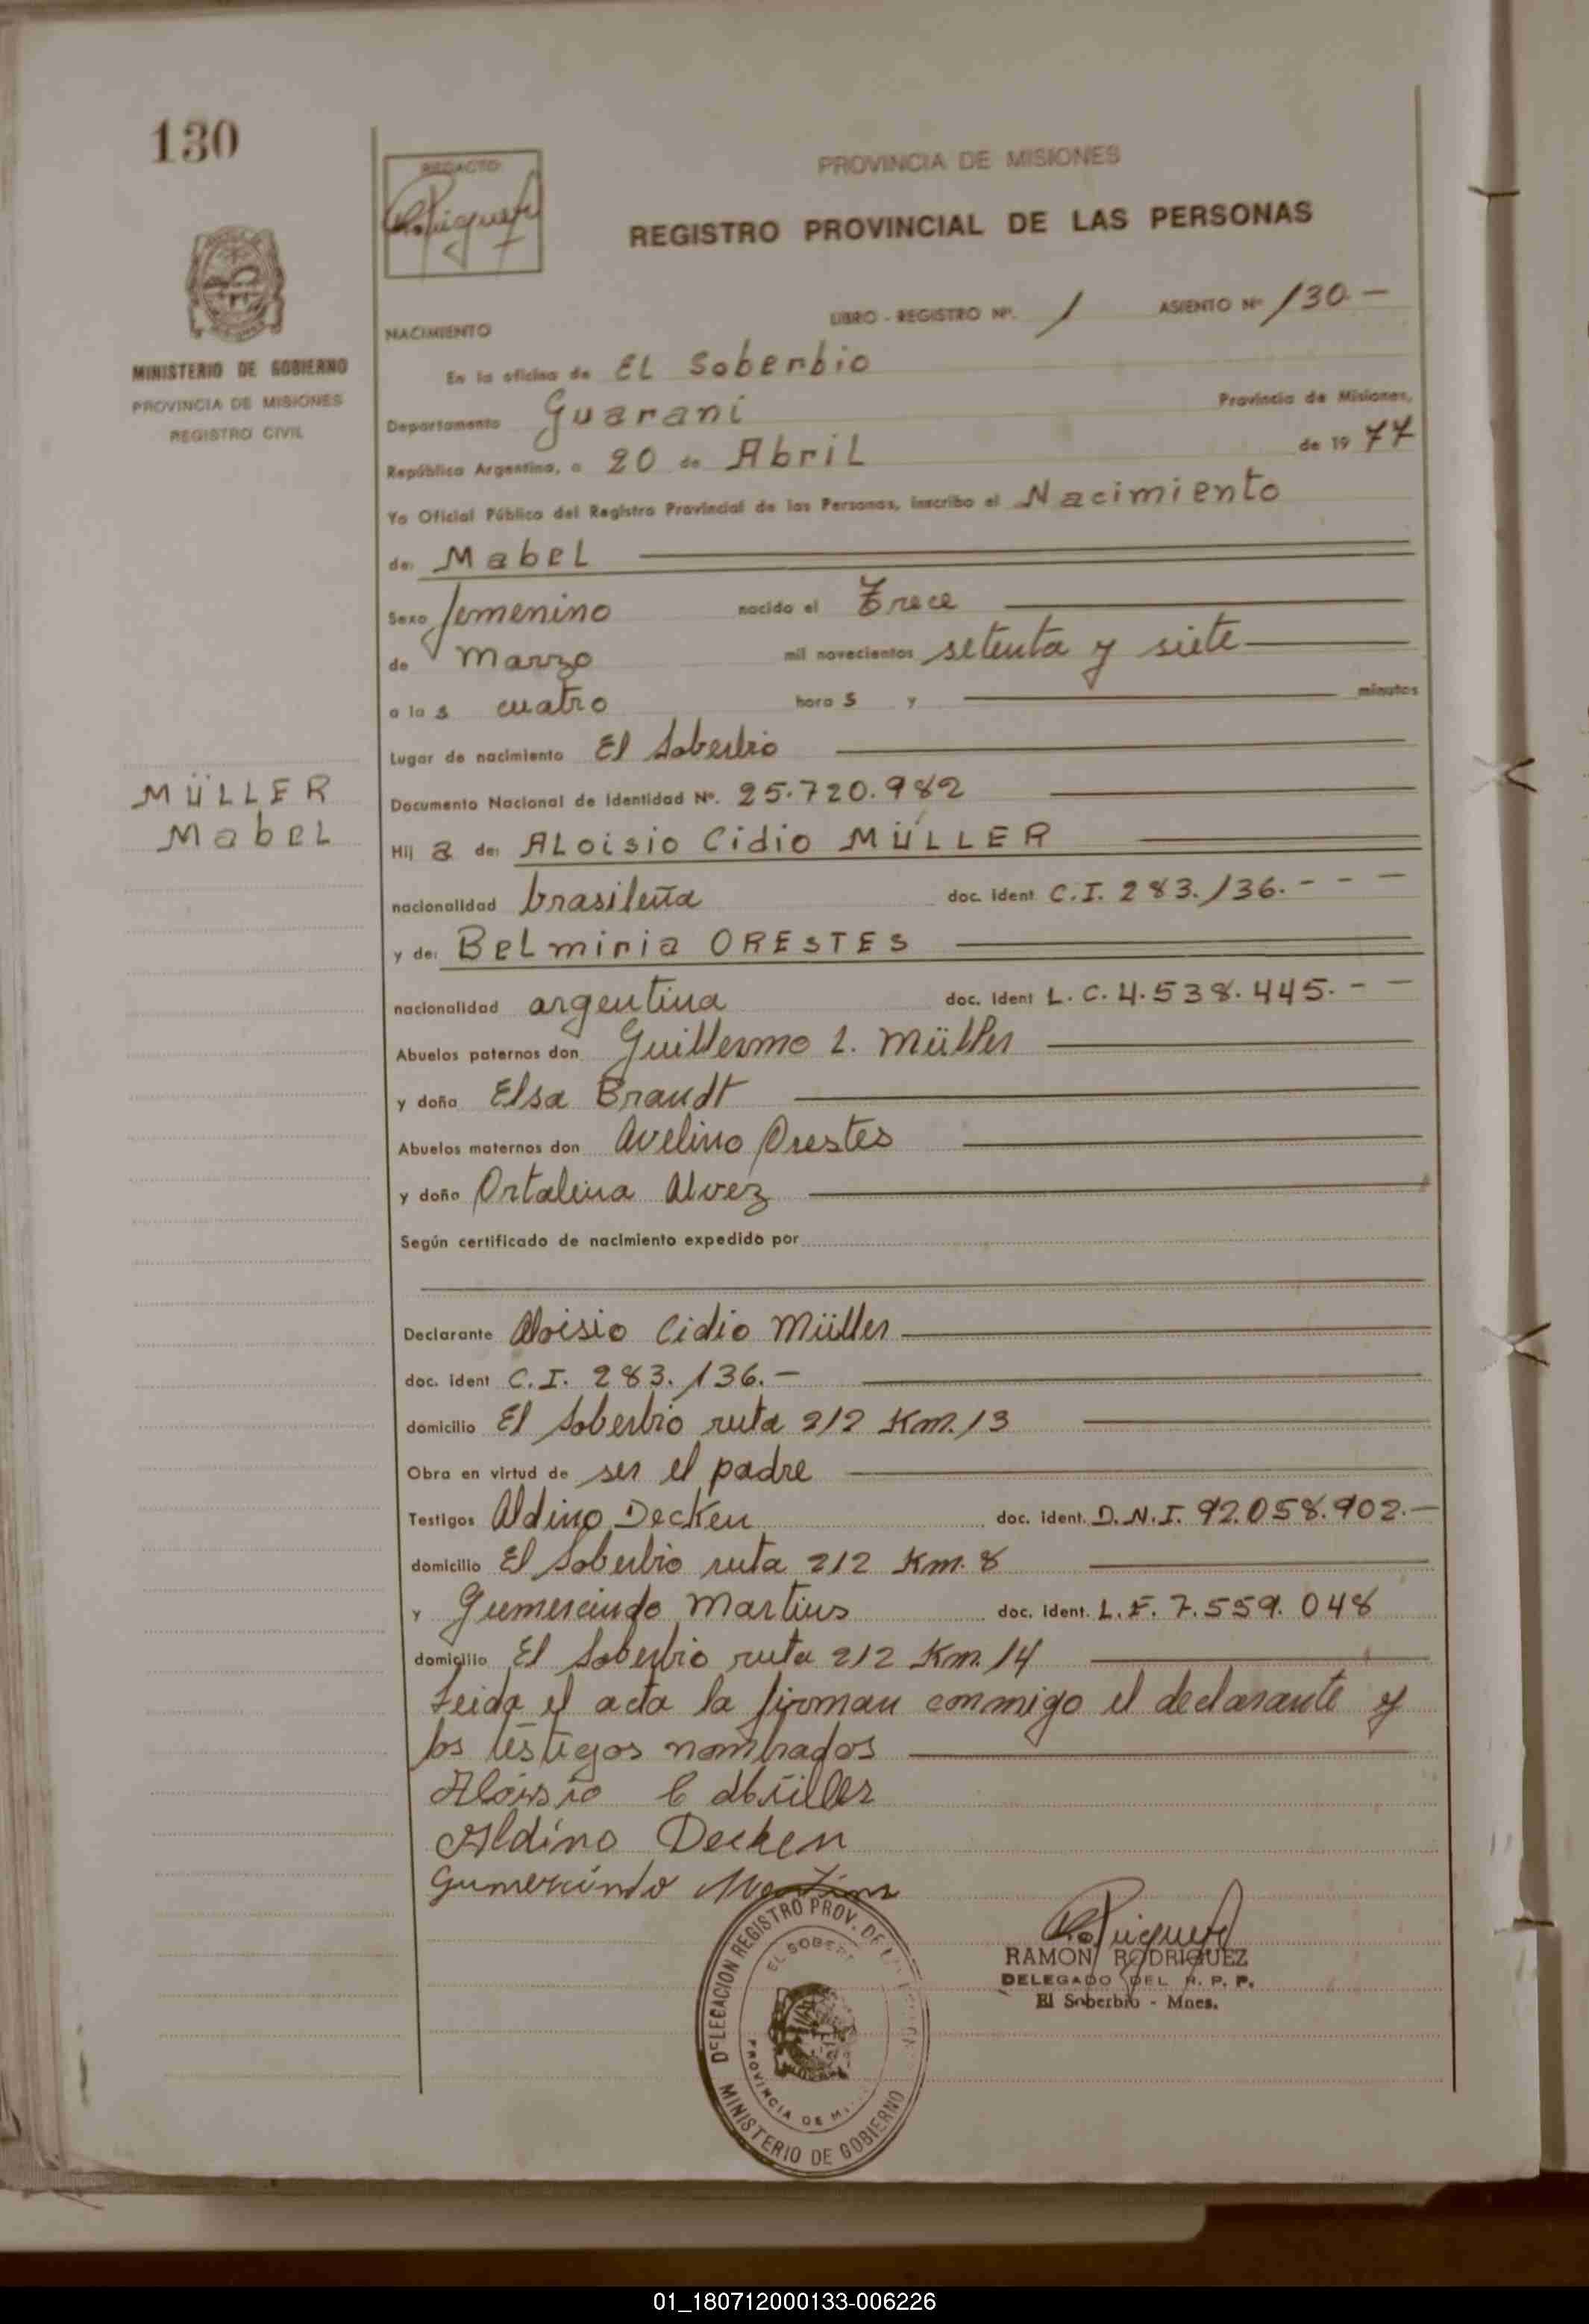 130
REDACTO
PROVINCIA DE MISIONES
REGISTRO PROVINCIAL DE LAS PERSONAS
MINISTERIO DE GOBIERNO
PROVINCIA DE MISIONES
REGISTRO CIVIL
LIBRO - REGISTRO Nº. 1 ASIENTO Nº 130 -
NACIMIENTO
En la oficina de EL Soberbio
Departamento Guaraní Provincia de Misiones,
República Argentina, a 20 de Abril de 1977
Yo Oficial Público del Registro Provincial de las Personas, inscribo el Nacimiento
de: Mabel
Sexo femenino nacido el Trece
de Marzo mil novecientos setenta y siete
a las cuatro horas y minutos
Lugar de nacimiento El Soberbio
MÜLLER
Mabel
Documento Nacional de Identidad Nº. 25.720.982
Hija de: ALoisio Cidio MÜLLER
nacionalidad brasileña doc. ident C.I. 283.136. - - -
y de: Belmiria ORESTES
nacionalidad argentina doc. ident L. C. 4.538.445. - -
Abuelos paternos don Guillermo L. Müller
y doña Elsa Brandt
Abuelos maternos don Avelino Orestes
y doña Ortalina Alvez
Según certificado de nacimiento expedido por
Declarante Aloisio Cidio Müller
doc. ident C.I. 283.136. -
domicilio El Soberbio ruta 212 Km. 13
Obra en virtud de ser el padre
Testigos Aldino Decken doc. ident. D.N.I. 92.058.902. -
domicilio El Soberbio ruta 212 Km. 8
y Gumercindo Martins doc. ident. L.E. 7.559.048
domicilio El Soberbio ruta 212 Km. 14
Leida el acta la firman conmigo el declarante y
los testigos nombrados
Aloisio C Müller
Aldino Decken
Gumercindo Martins
DELEGACION REGISTRO PROV. DE
EL SOBER
PROVINCIA DE MI
MINISTERIO DE GOBIERNO
RAMON RODRIGUEZ
DELEGADO DEL R. P. P.
El Soberbio - Mnes.
01_180712000133-006226